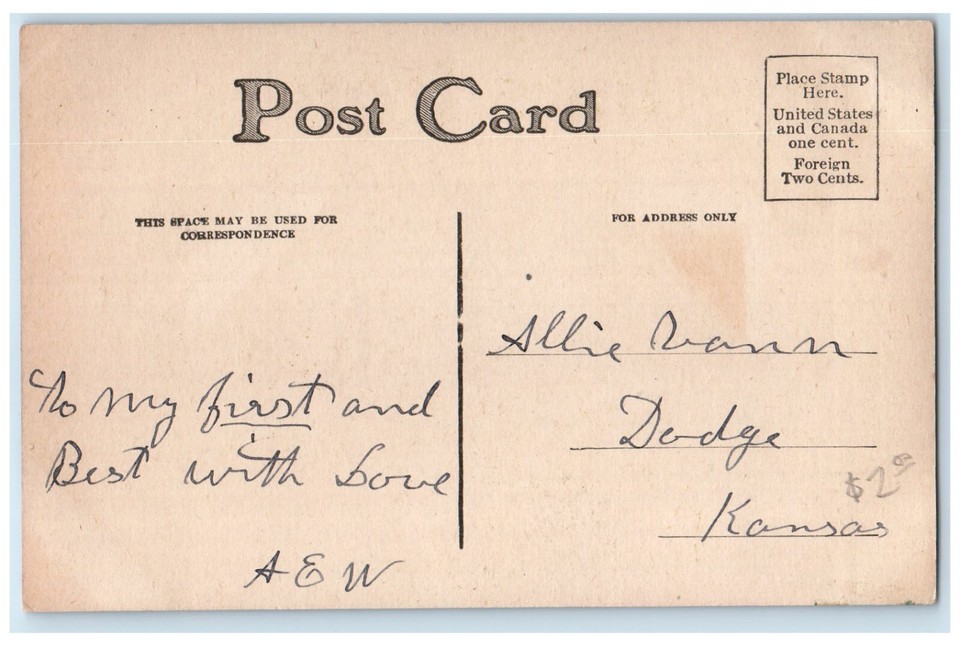 Post Card
Place Stamp
Here.
United States
and Canada
one cent.
Foreign
Two Cents.
THIS SPACE MAY BE USED FOR
CORRESPONDENCE
FOR ADDRESS ONLY
To my first and
Best with Love
A E W
Allie Vann
Dodge
Kansas
$2.00